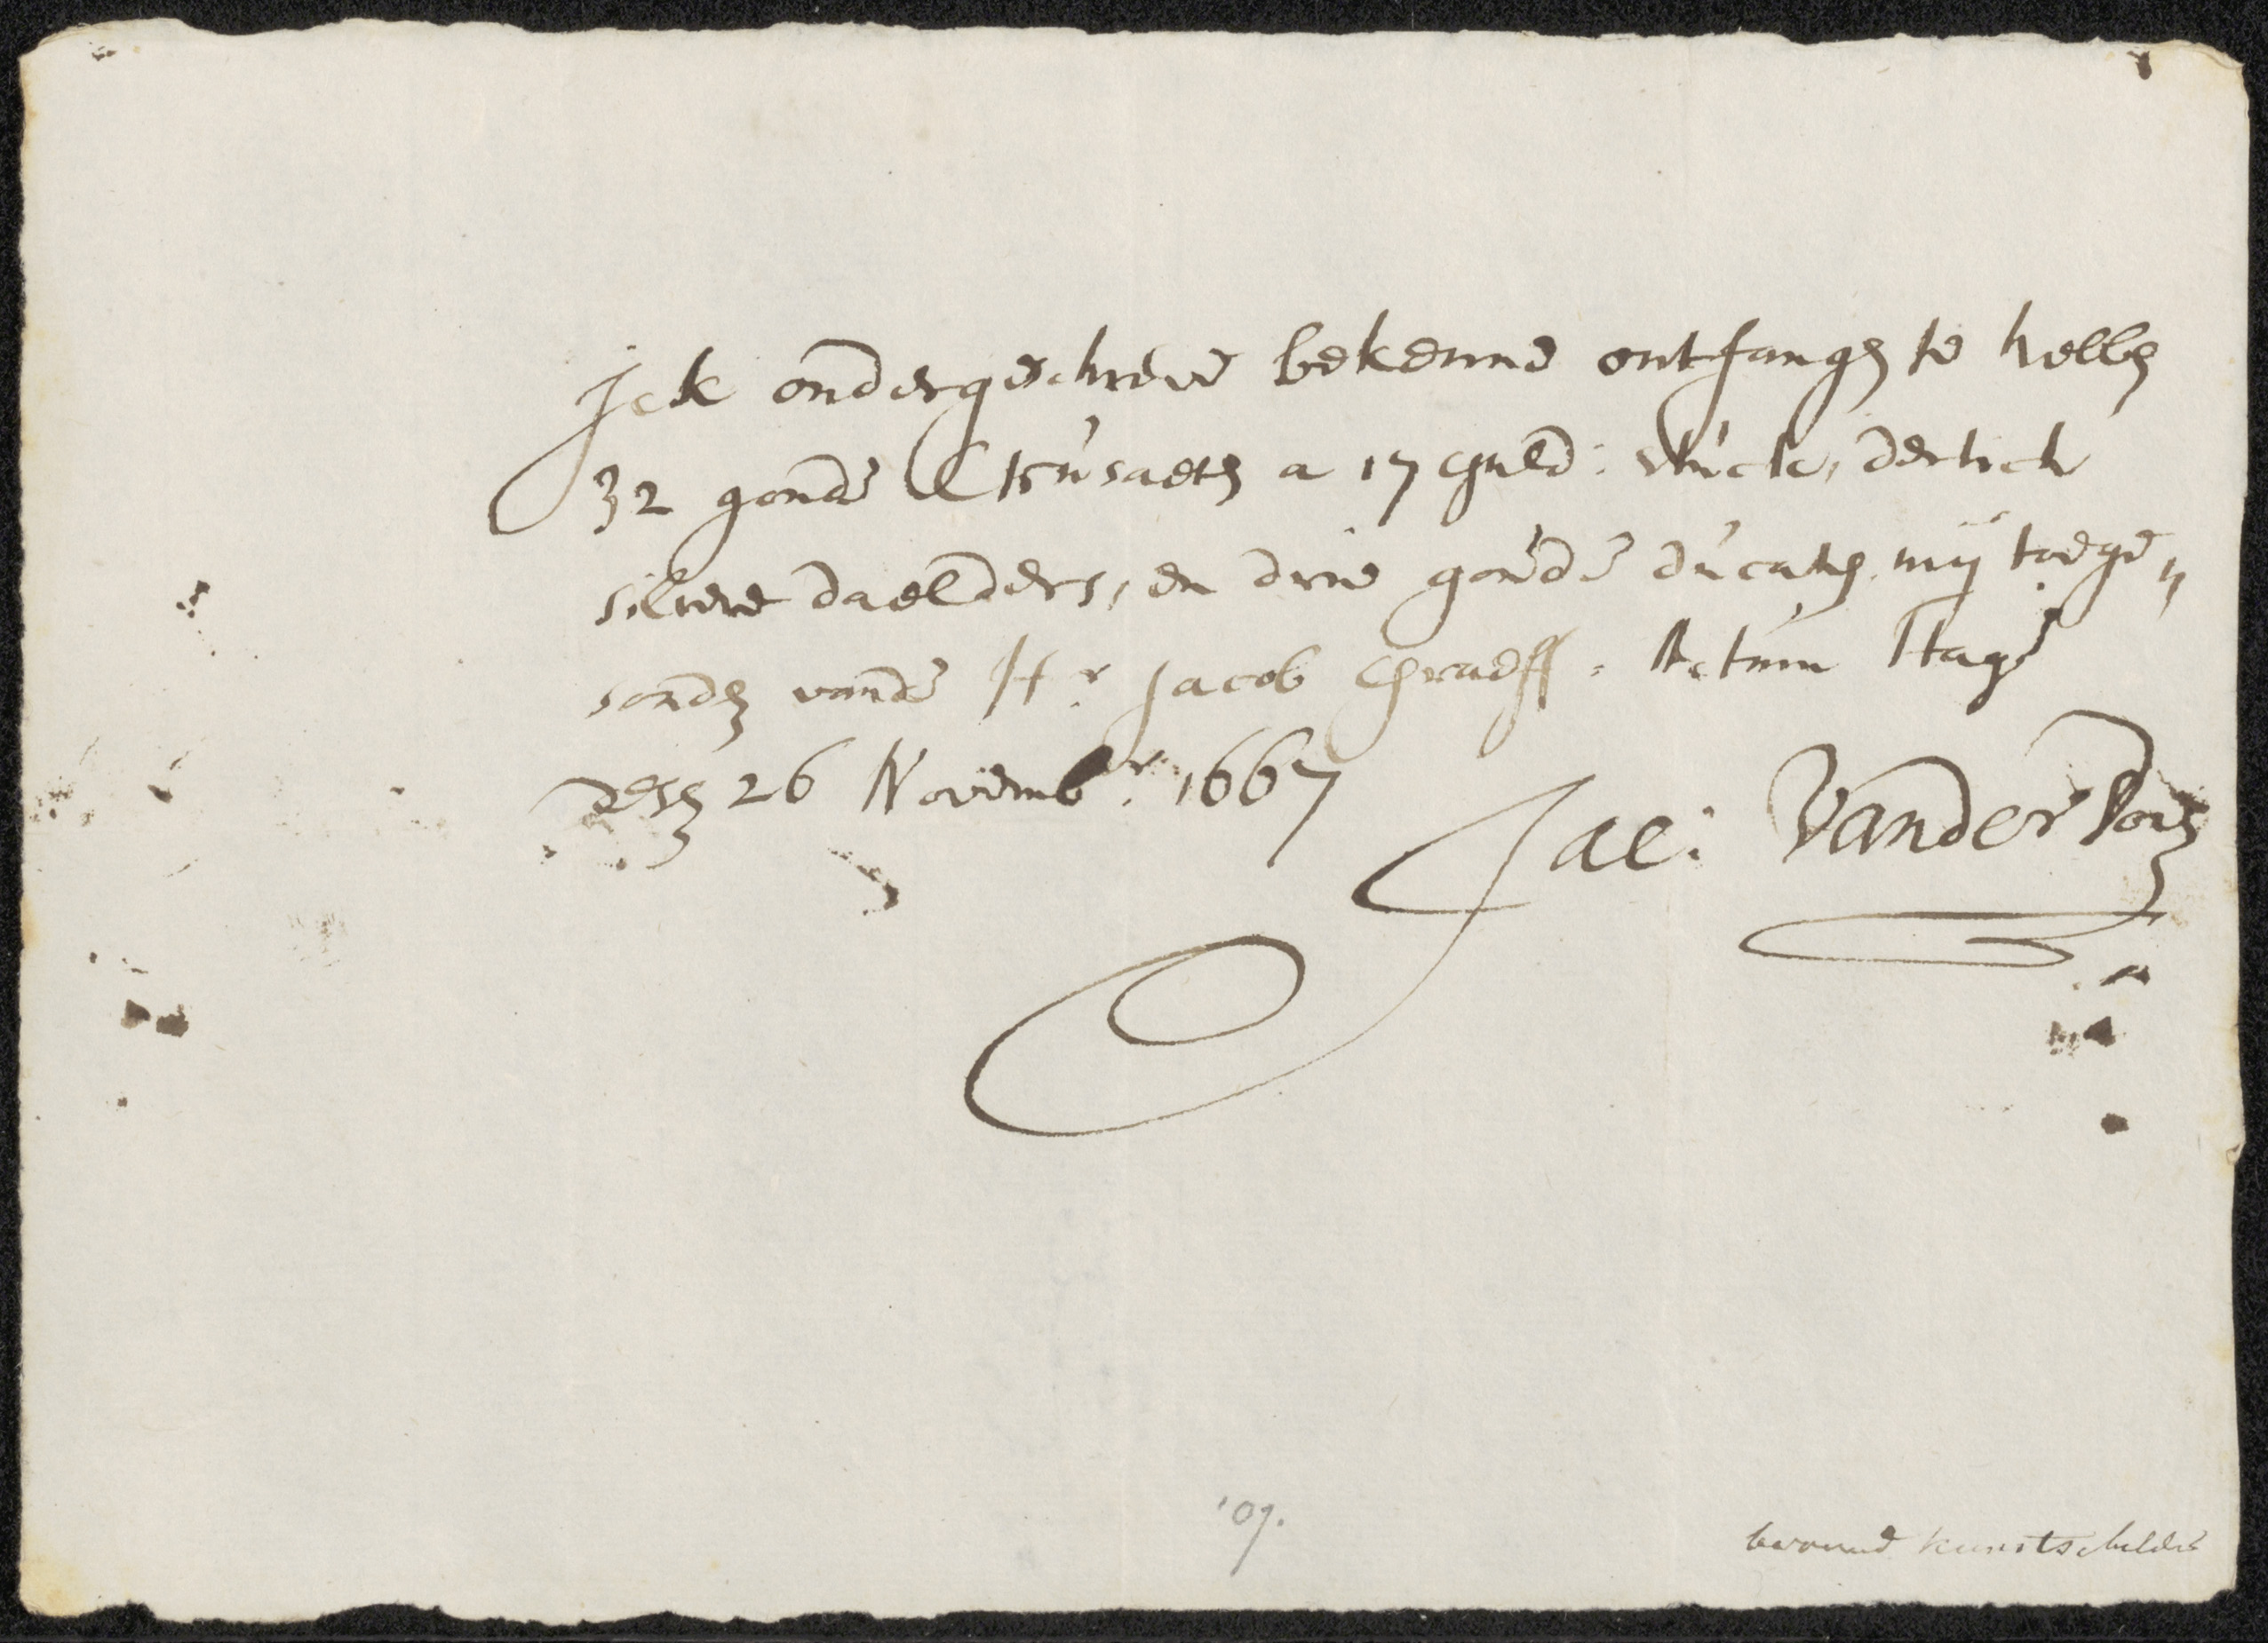 Jck ondergeschreve bekenne ontfangen te hebben
32 goude Crusaeten a 17 guld: stuck, dertich
silvere daelders, en drie goude ducaten mij toege„
sonden vande Hr. Jacob Graeff. Actum Hage
desen 26 Novembr. 1667
Jac: Vander Does
'09.
beroemd kunstschilder